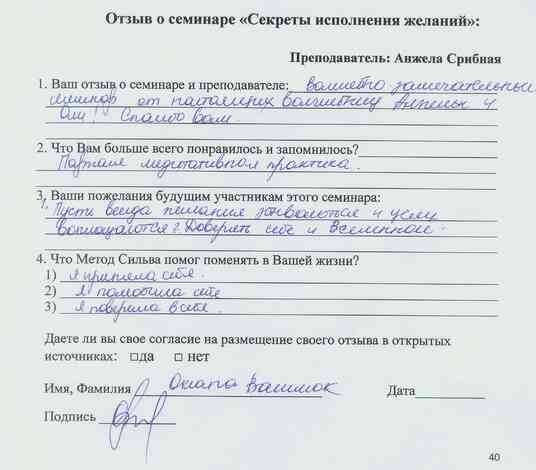 Отзыв о семинаре «Секреты исполнения желаний»:
Преподаватель: Анжела Срибная
1. Ваш отзыв о семинаре и преподавателе: Волшебно замечательный
семинар от настоящих волшебниц Анжелы и
Оли! Спасибо Вам.
2. Что Вам больше всего понравилось и запомнилось?
Парная медитативная практика.
3. Ваши пожелания будущим участникам этого семинара:
Пусть всегда желания и
воплощаются! Доверять себе и Вселенной.
4. Что Метод Сильва помог поменять в Вашей жизни?
1) Я приняла себя.
2) Я полюбила себя
3) Я поверила в себя.
Даете ли вы свое согласие на размещение своего отзыва в открытых
источниках: □да □ нет
Имя, Фамилия Оксана Дата
Подпись
40